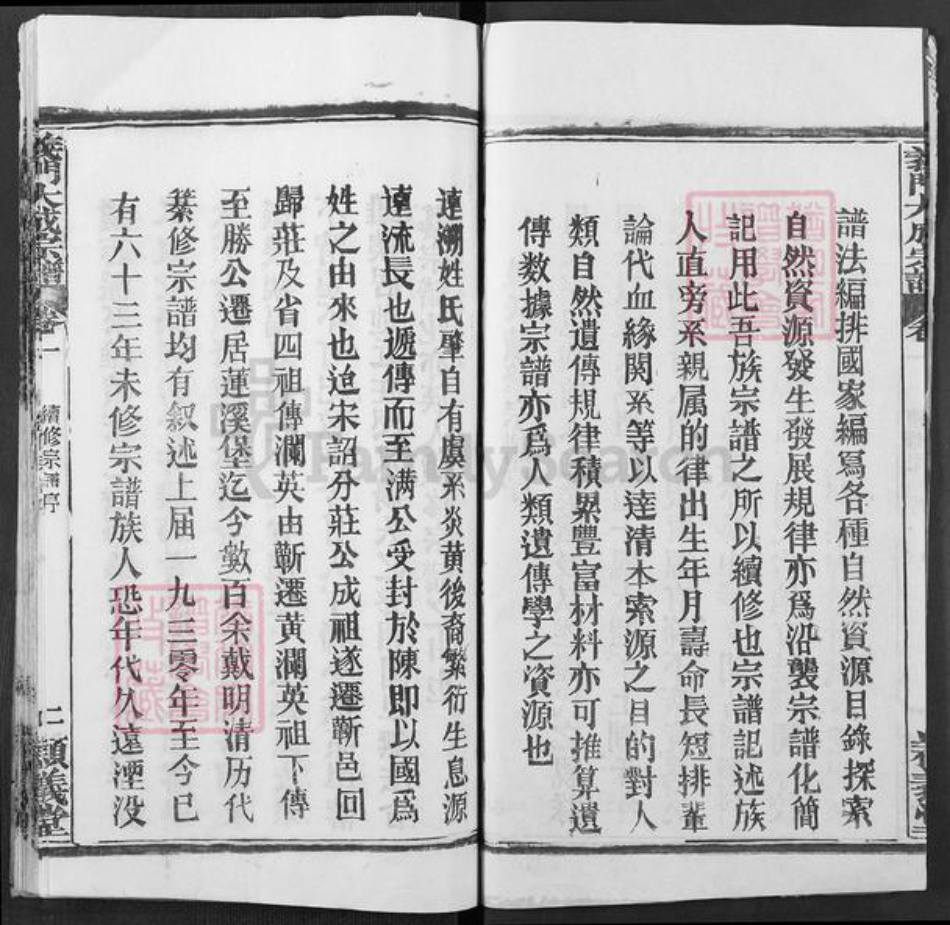 譜法編排國家編寫各種自然資源目錄探索
自然資源發生發展規律亦爲沿襲宗譜化簡
記用此吾族宗譜之所以續修也宗譜記述族
人直旁系親属的律出生年月壽命長短排輩
論代血緣関系等以逹清本索源之目的對人
類自然遺傳規律積累豐富材料亦可推算遺
傳数據宗譜亦爲人類遺傳學之資源也
連溯姓氏肇自有虞系炎黄後裔繁衍生息源
遠流長也遞傳而至满公受封於陳即以國爲
姓之由來也迨宋詔分莊公成祖遂遷蘄邑回
歸莊及省四祖傳瀾英由蘄遷黄瀾英祖下傳
至勝公遷居蓮溪堡迄今數百余戴明清历代
纂修宗譜均有叙述上届一九三零年至今已
有六十三年未修宗譜族人恐年代久遠湮没
義門大成宗譜
卷一
續修宗譜序
二
穎義堂
FamilySearch